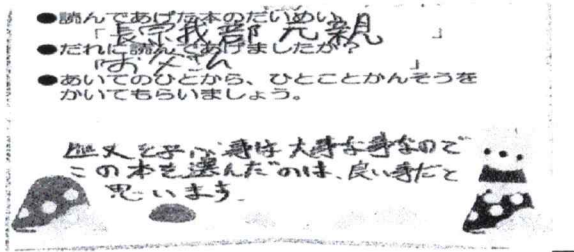 ●読んであげた本のだいめい
「長宗我部元親」
●だれに読んであげましたか？
「お父さん」
●あいてのひとから、ひとことかんそうを
かいてもらいましょう。
歴史を学ぶ事は大事な事なので
この本を選んだのは、良い事だと
思います。